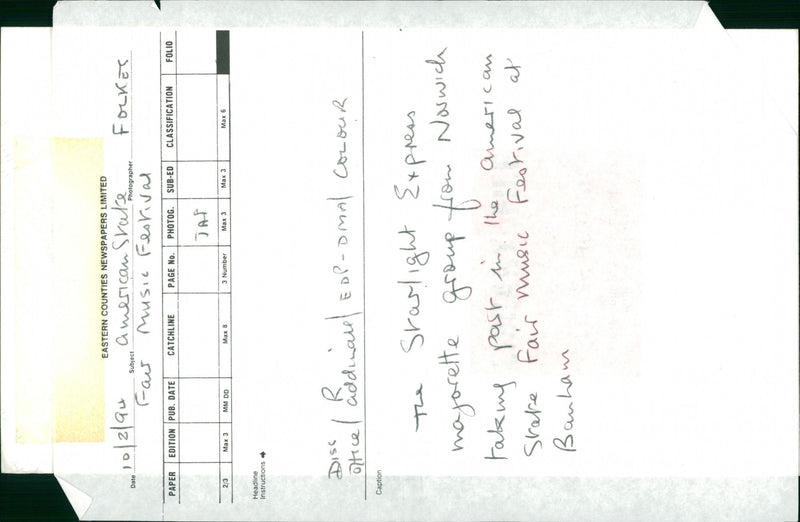 EASTERN COUNTIES NEWSPAPERS LIMITED
Date 10/2/94 Subject American State Photographer FOLKES
Fair Music Festival
PAPER EDITION PUB. DATE CATCHLINE PAGE No. PHOTOG. SUB-ED CLASSIFICATION FOLIO
JAF
2/3 Max 3 MM DD Max 8 3 Number Max 3 Max 3 Max 6
Headline
Instructions ➔
Diss R
office / addinall / EDP-DMA / COLOUR
Caption
The Starlight Express
majorette group from Norwich
taking part in the American
State Fair Music Festival at
Banham